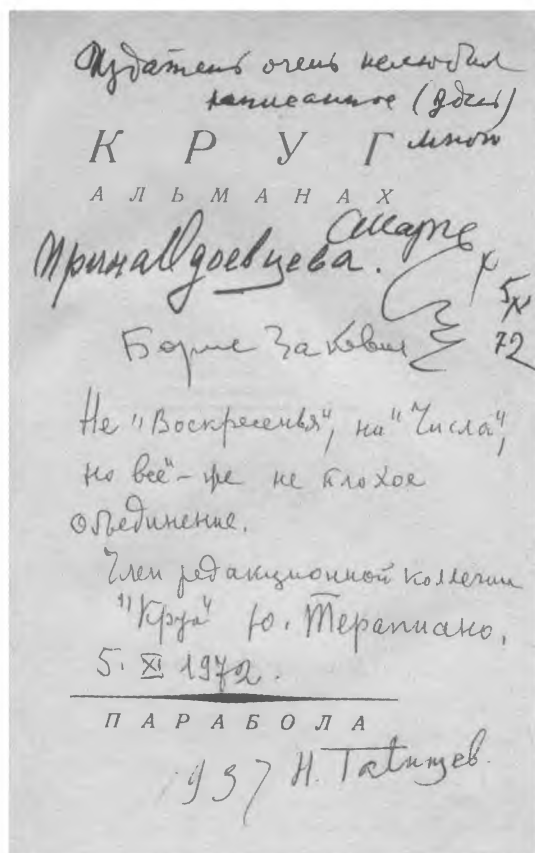 Издатель очень нелюбил
написанное (здесь)
К Р У Г мною
А Л Ь М А Н А Х
Ирина Одоевцева.
5
X
72
Борис Закович
Не "Воскресенья", ни "Числа",
но всё-же не плохое
объединение.
Член редакционной коллегии
"Круга" Ю. Терапиано.
5. XI 1972.
П А Р А Б О Л А
1937 Н. Татищев.